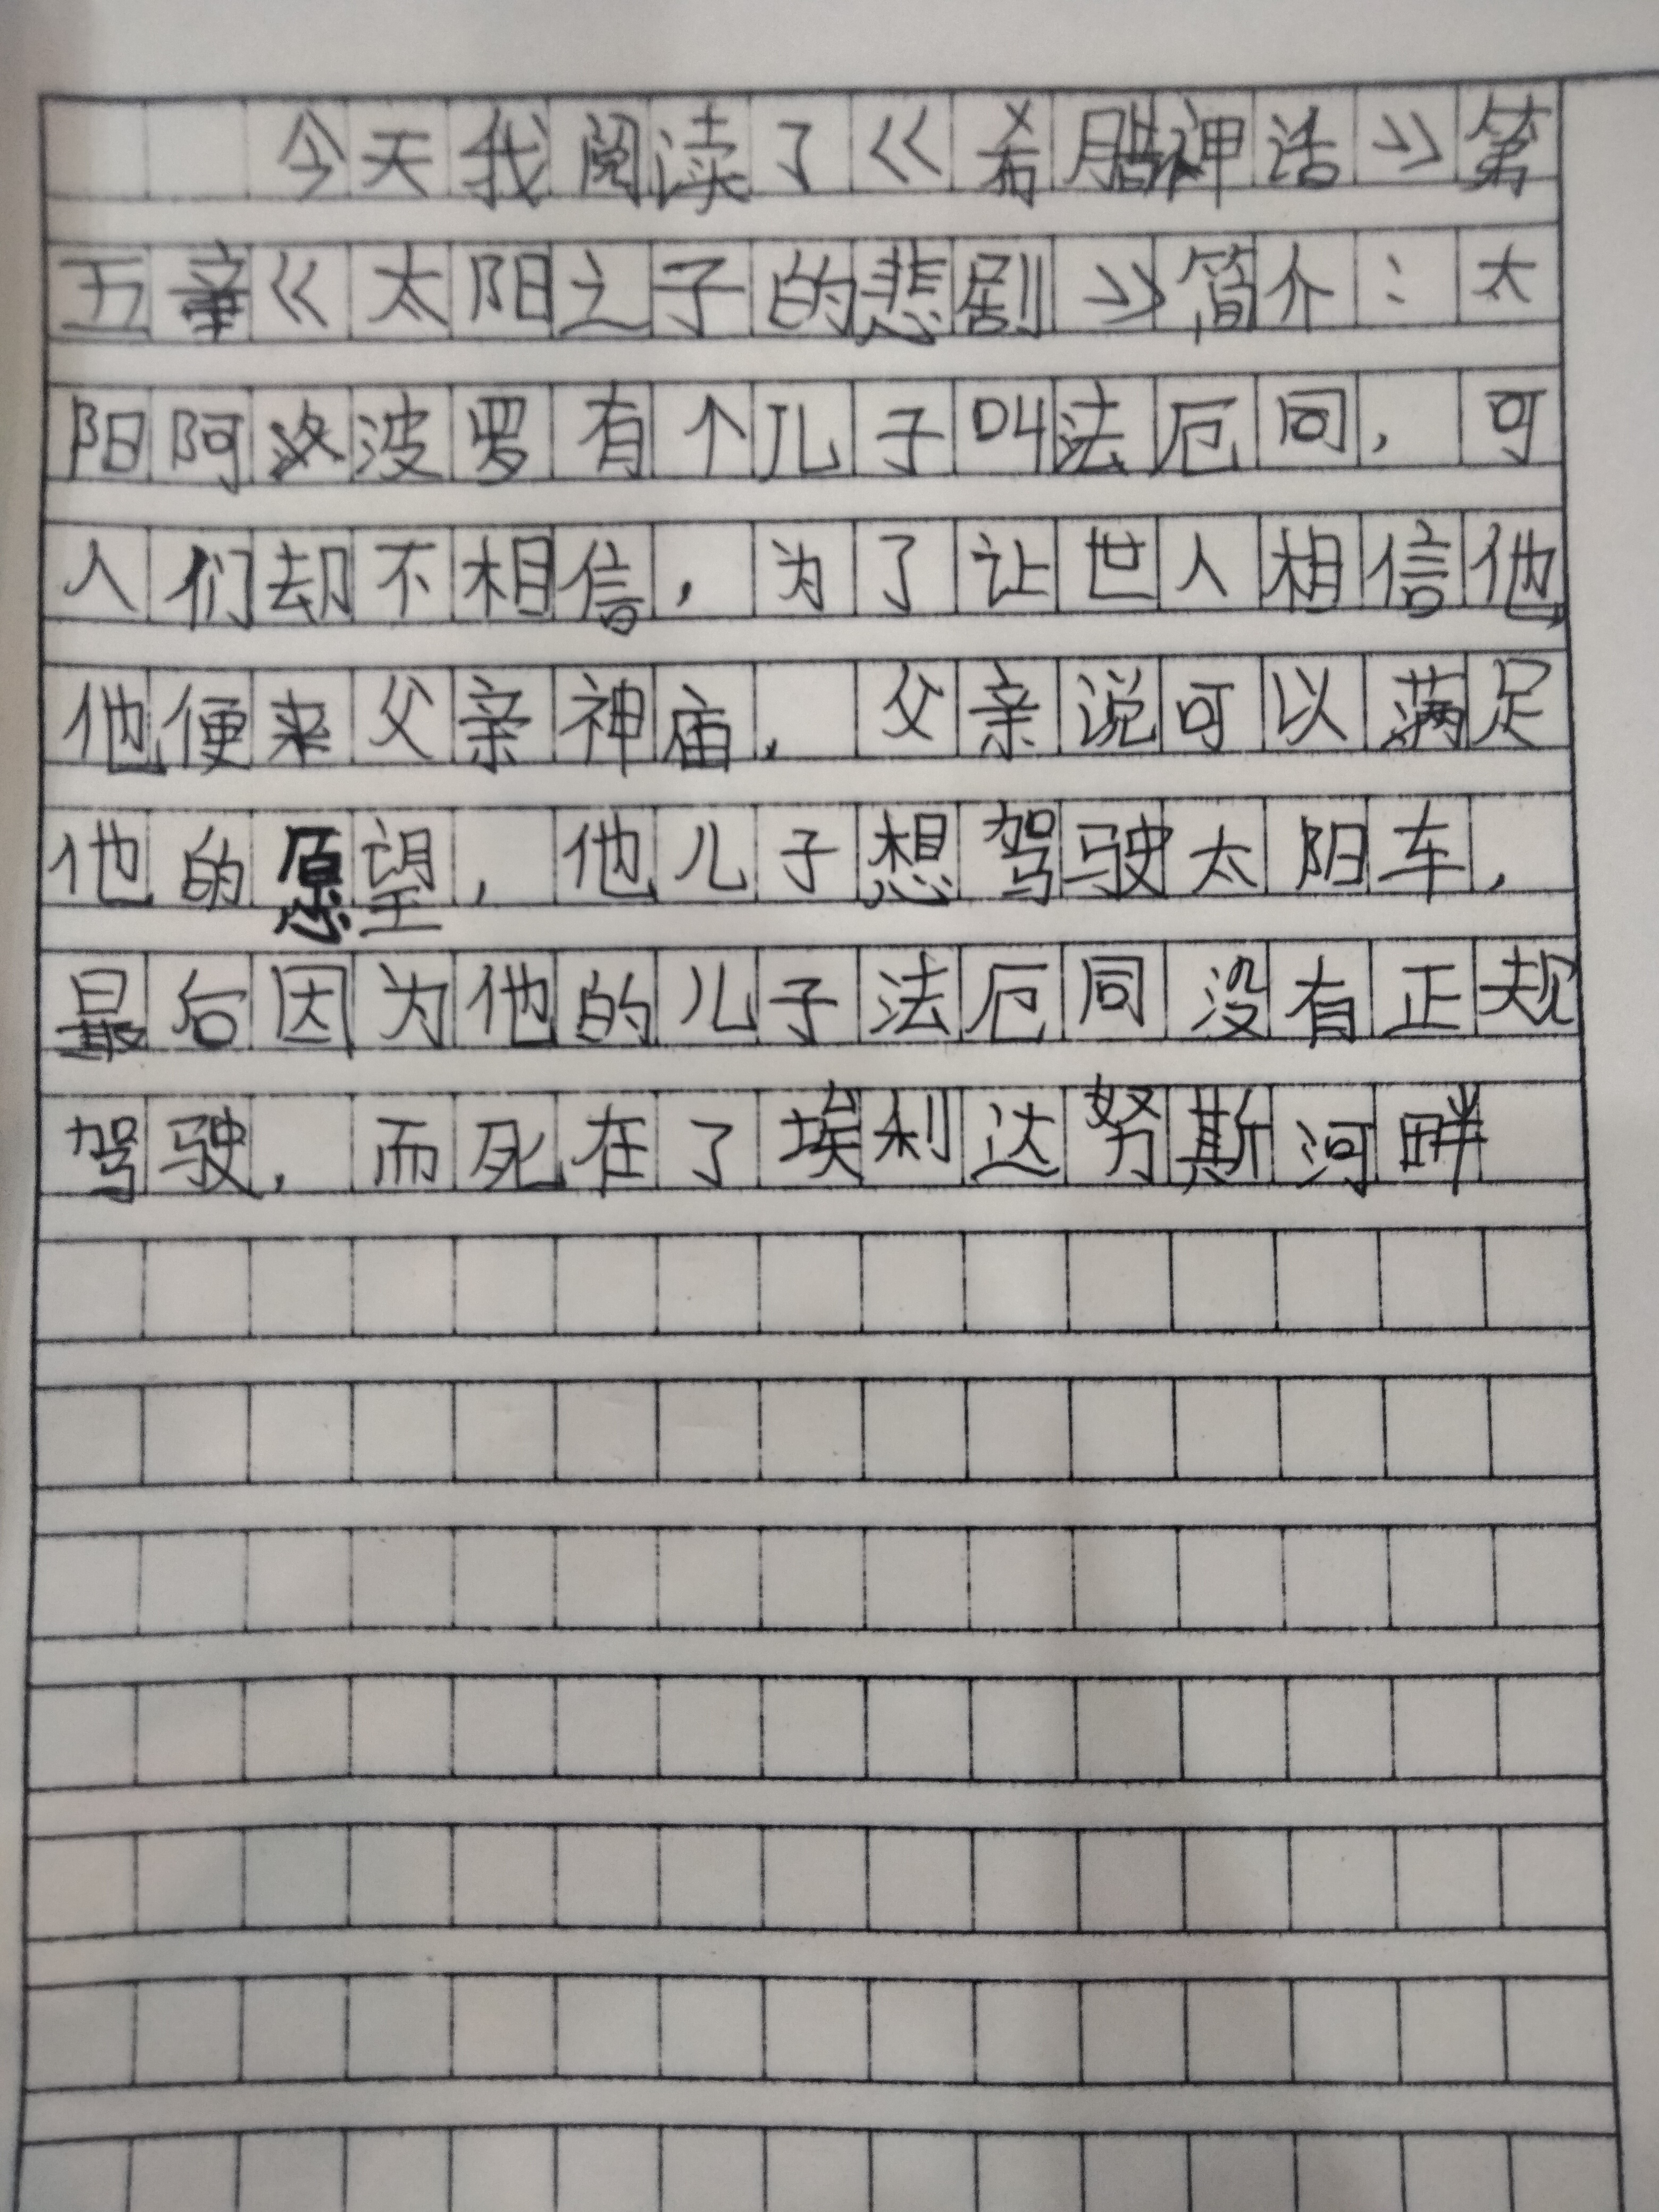 今天我阅读了《希腊神话》第
五章《太阳之子的悲剧》简介：太
阳阿波罗有个儿子叫法厄同，可
人们却不相信，为了让世人相信他，
他便来父亲神庙，父亲说可以满足
他的愿望，他儿子想驾驶太阳车，
最后因为他的儿子法厄同没有正规
驾驶，而死在了埃利达努斯河畔